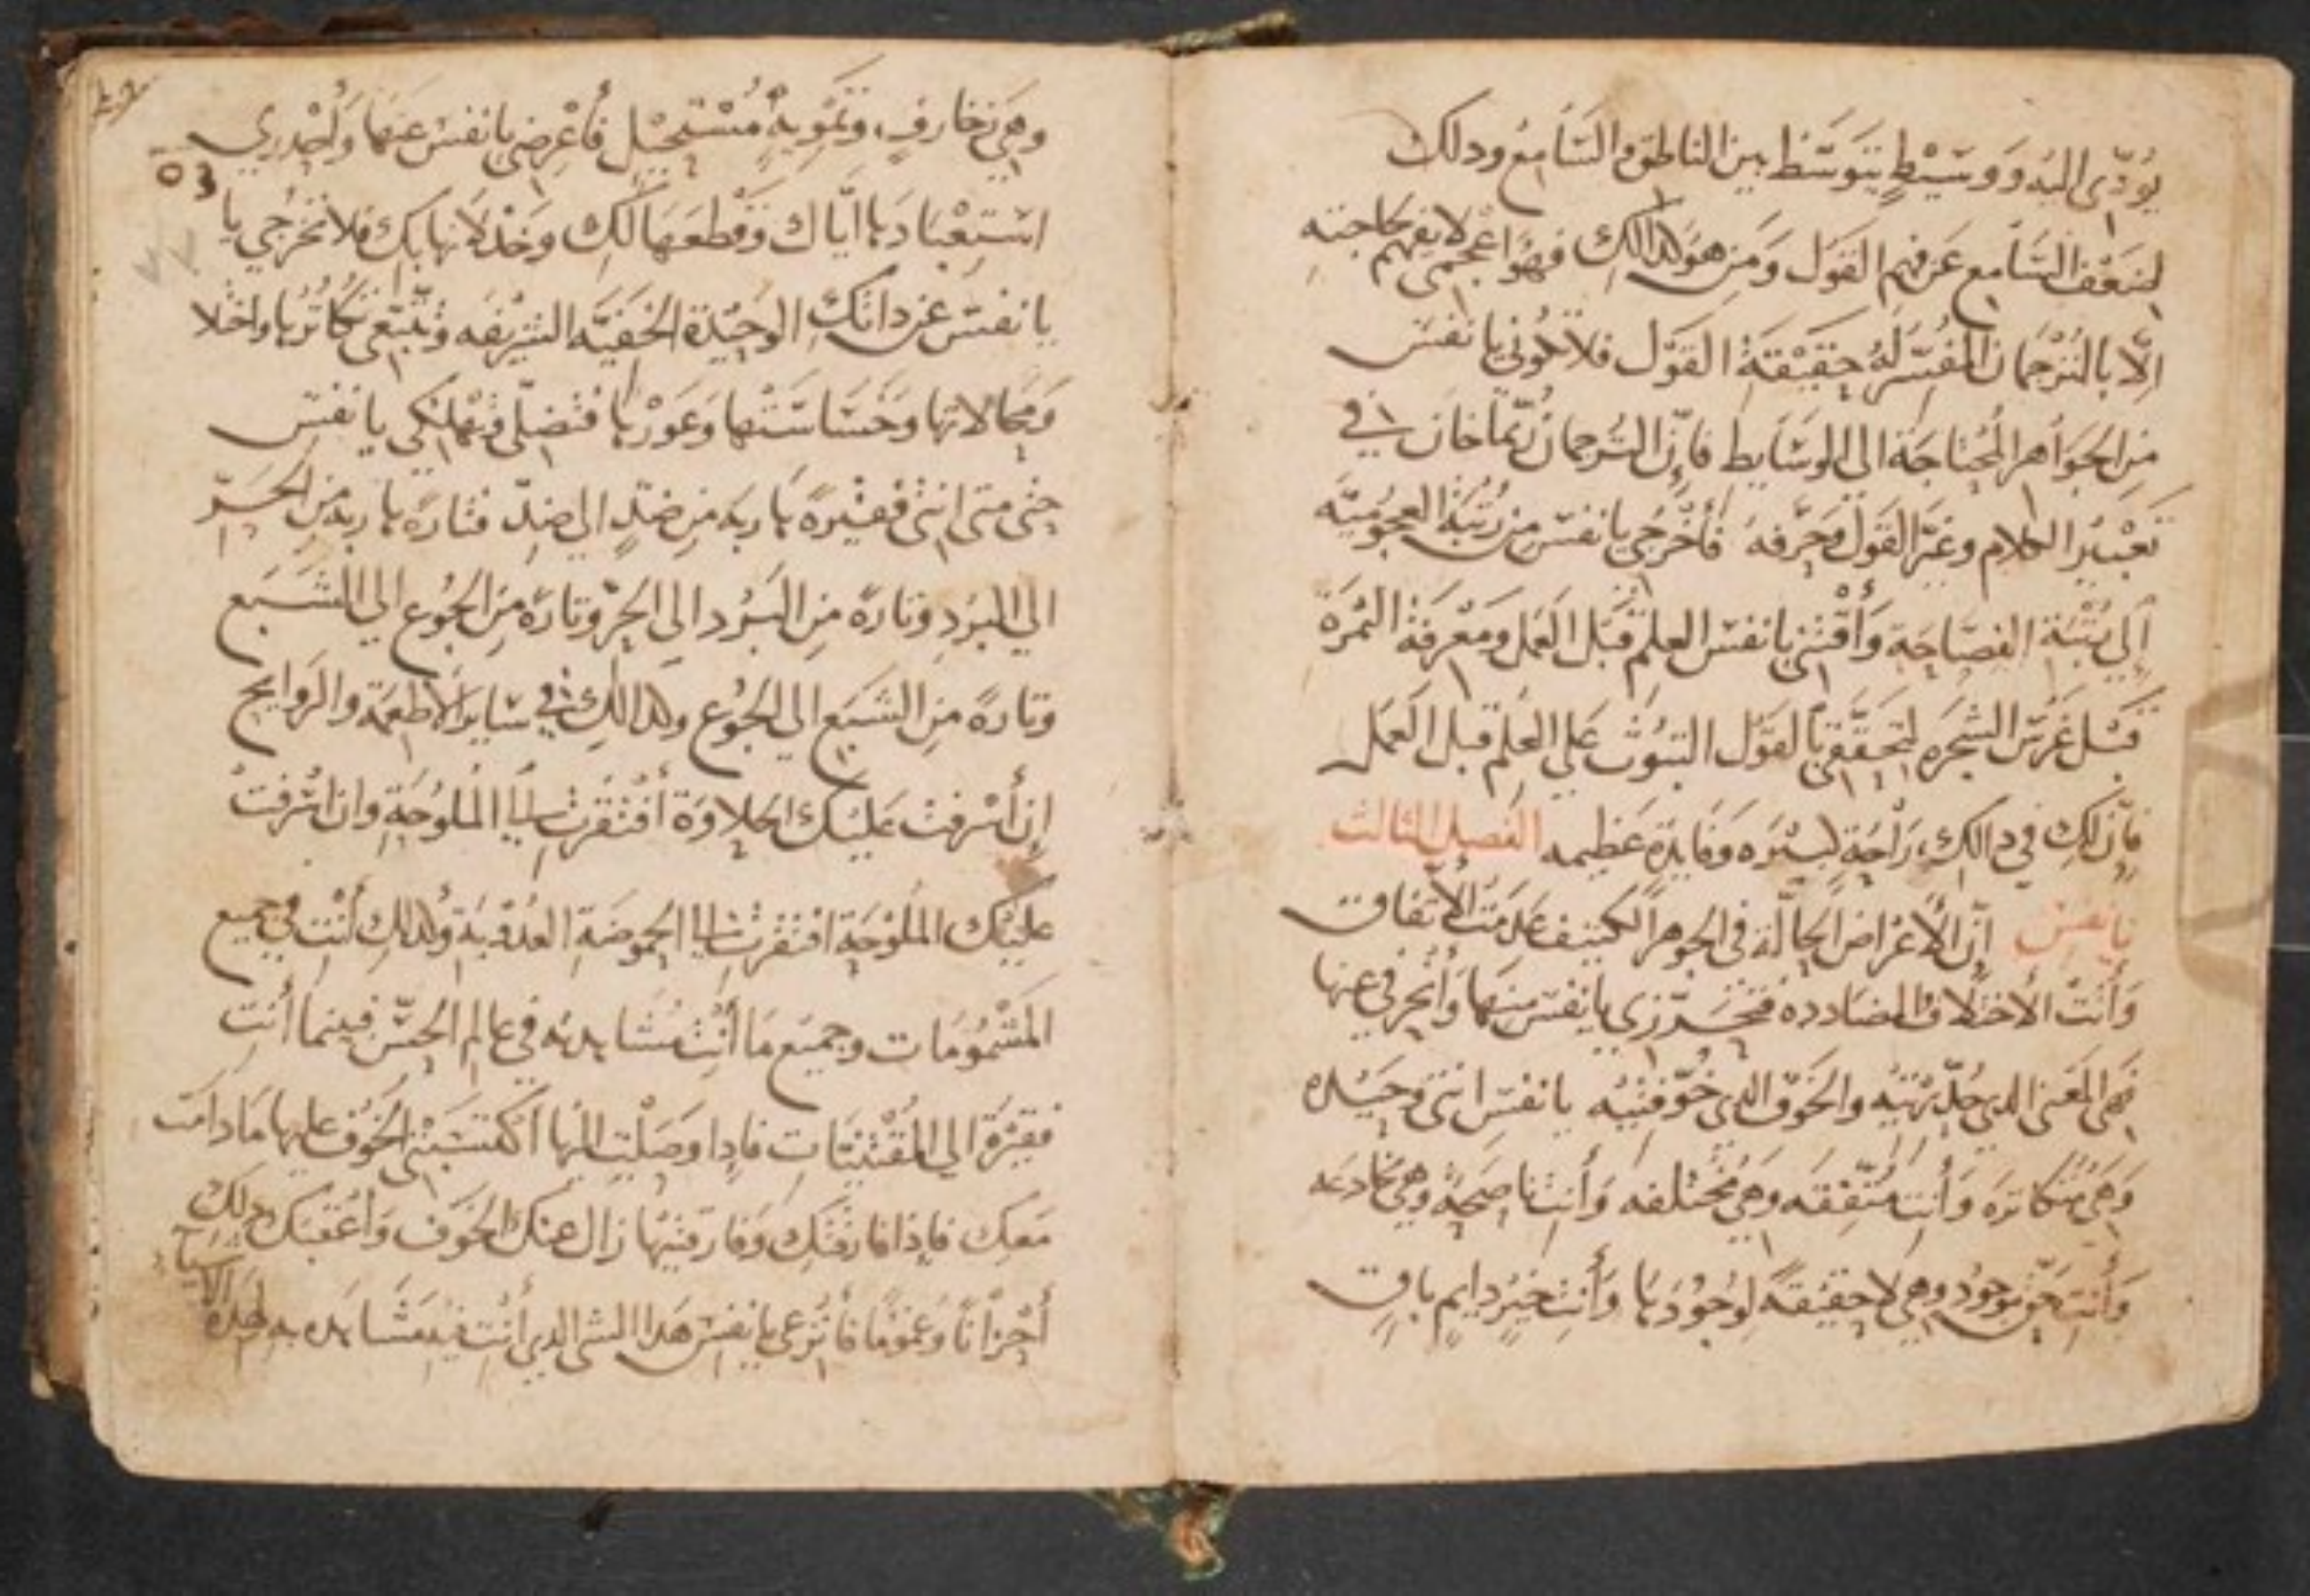 يُؤدّى اليْه وَوَسَيْطٍ يَتَوَسَّط بين الناطق والسَّامِع ودلك
لضَعْف السَّامع عَن فهم القَول وَمَن هو كدالك فهُوَ اعْجمى لا يفهم بحَاجته
الَّا بالتُرْجَمان المفُسّر لَهُ حقيْقَة القَوْل فلا تكُوني يا نفسَ
مِن الجوَاهر المُحتاجَة الى الوسَايط فإِن التَرجمان رُبّما خان في
تَعْبيْر الكلام وغيَّر القَول وَحَرّفهُ فأخْرُجي يا نفسَ من رُتبَة العجُوميَّه
إلي رُتْبَة الفصَاحَة وَأَقْتني يا نفسَ العلم قَبْل العَمل ومَعْرفَة الثمرَة
قَبْل غَرسَ الشجَره لتحَققي بالقَوْل الثبُوت عَلي العِلم قبل العَمَل
فإن لكِ في دالك رَاحَةٍ كبيْرَه وَفايدَة عَظيمه الفصل الثالث
يا نفسَ إنّ الأعْراض الحالّة في الجوهر الكثيف عَدمَت الأتفاق
وَأنتْ الأختلاف المضاددة فتحَرّزي يا نفسَ منهَا وَأنحَرفي عنها
فهى المَعَنى الدي حُدّرتيْه والخَوْف الدي خُوّفتيْه يا نفسَ انتي وحيَدْه
وَهيَ مُتكاثرَه وَأنت مُتّفقَه وَهي مُختلفه وَأنتِ ناصحَة وهي مُخادعَه
وَأنت حَقّ موجُود وهي لا حقيقَة لوجُودَها وَأنتِ خيرٌ دايمٍ باقٍ
وهيَ زخارفٍ وَتمَويهٍ مُسْتَحيْل فأعْرضي يا نفسَ عنهَا وَأحْدري
استعْبَادَها ايَّاك وَقطعَهَا لكِ وخدْلانها بكِ فلا تخرُجي يا
يا نفسَ عن داتكِ الوحيْدة الخَفيَّه الشريْفه وتتبّعي تكاثُرها واختلا
وَمحَالاتها وخَسَاسَتْها وَعَوْرها فتضلّي وتهْلكي يا نفسَ
حتى متى انتي فقيْرهً هاربَه من ضدٍّ الى ضدّ فتارَه هاربه من الحَرّ
الي البرَدِ وتارَه مِن البَرْد الى الحرّ وتارَه مِن الجوُع الي الشَبَع
وتارةً مِن الشبَع الي الجُوُع وكدالك في سَاير الأطعمَة والروَايح
إن أشرفتْ عَليْكِ الحَلاوَة أفْتقرتِ الي المُلوُحَةِ وان اشْرفتْ
عليْك المُلوْحَة افتقرتِ الي الحموُضَة العُدوْبَة وكدالك أنْتِ في جميع
المشْمُوُمَات وجميَع مَا أنْتِ مُشَاهدتُه في عالم الحسّ فبينما أنتِ
فقيْرَة الي المُقْتَنيَات فإدا وَصَلْتي اليْها اكْتسَبَتْي الخَوُف عليها مَا دامَت
مَعكِ فإذا فارقتكِ وَفارقتيْها زال عنكِ الخَوَف وَأعْقبَكِ دلك
أحْزاناً وَغموُماً فأنْزعي يا نفسَ هَدا الشي الدي أنْتِ فيه تشَاهَده به لهَدهْ
الاشيَاء